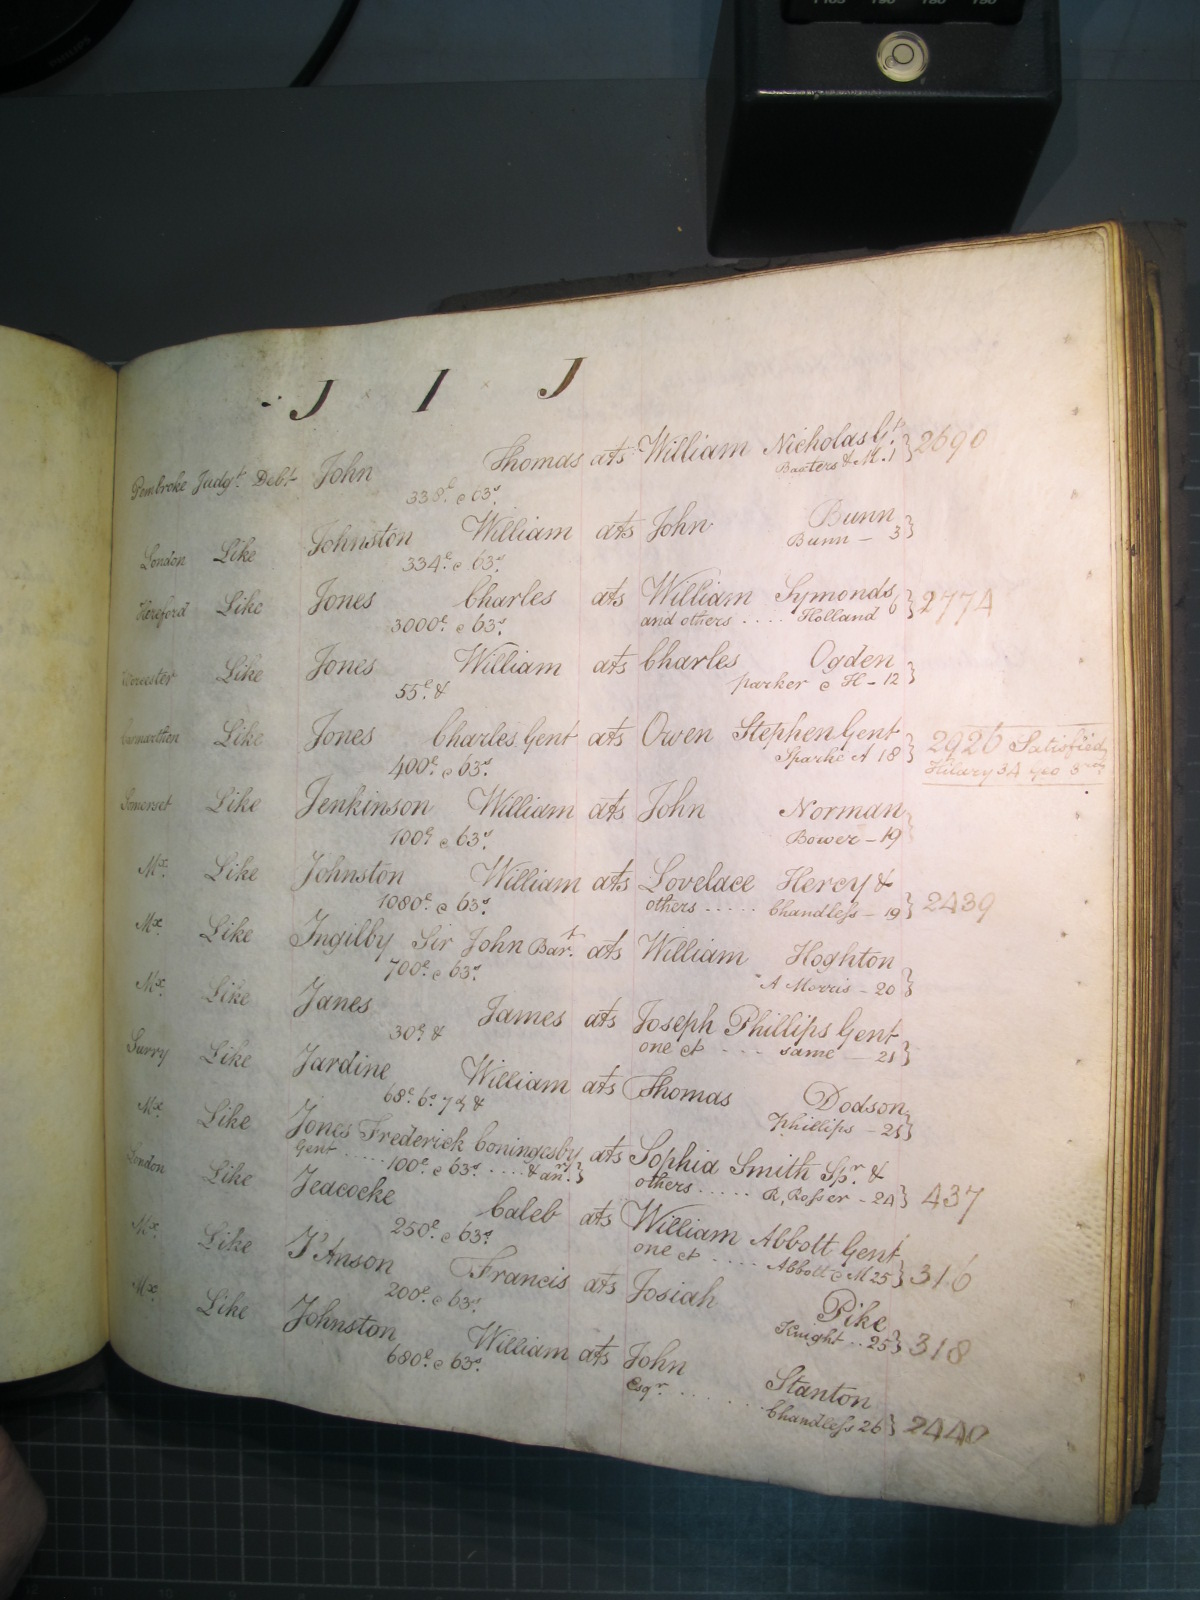 J I J
Pembroke Judgt. Debt. John Thomas ats William Nicholas Gt. } 2690
338£. & 63s. Baxters & M. 1
London Like Johnston William ats John Bunn }
334£. & 63s. Bunn – 3
Hereford Like Jones Charles ats William Symonds } 2774
3000£. & 63s. and others .... Holland 6
Worcester Like Jones William ats Charles Ogden }
55£. & Parker & H – 12
Carmarthen Like Jones Charles Gent ats Owen Stephen Gent } 2926 Satisfied
400£. & 63s. Sparke A 18 Hilary 34 Geo 3rd
Somerset Like Jenkinson William ats John Norman }
100£ & 63s. Bower – 19
Mx. Like Johnston William ats Lovelace Hercy &
1080£. & 63s. others ..... Chandless – 19 } 2439
Mx. Like Ingilby Sir John Bart. ats William Hoghton
700£. & 63s. A Morris – 20 }
Mx. Like Janes James ats Joseph Phillips Gent
30£ & one &c .... same – 21 }
Surry Like Jardine William ats Thomas Dodson
68£. 6s. 7d & Phillips – 21 }
Mx. Like Jones Frederick Coningesby ats Sophia Smith Spr. &
Gent ..... 100£. & 63s .... & anr. } others ..... R, Rosser – 24 } 437
London Like Jeacocke Caleb ats William Abbott Gent
250£. & 63s. one &c .... Abbott & M 25 } 316
Mx. Like I'Anson Francis ats Josiah Pike
200£. & 63s. Knight .. 25 } 318
Mx. Like Johnston William ats John Stanton
680£. & 63s. Esqr. ...... Chandless 26 } 2440